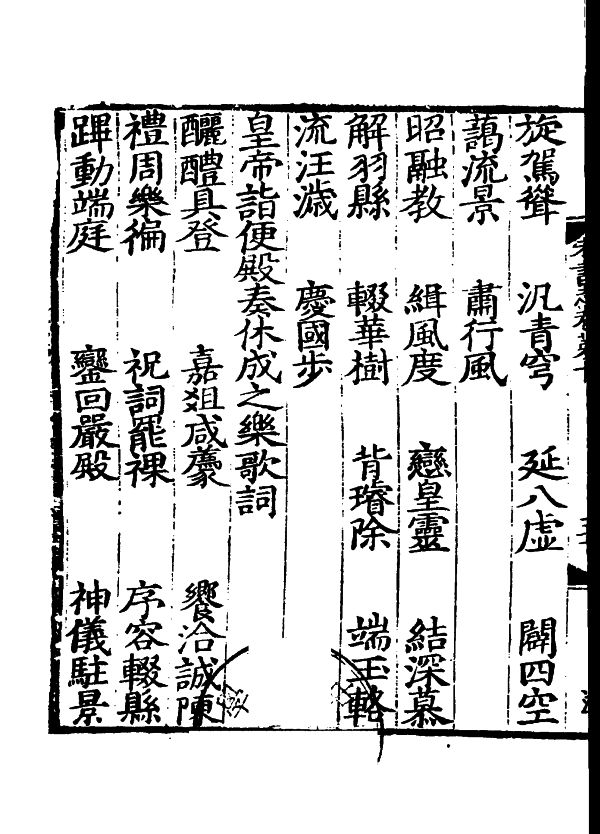 旋駕聳　汎青穹　延八虛　闢四空
藹流景　肅行風
昭融教　緝風度　戀皇靈　結深慕
解羽縣　輟華樹　背璿除　端玉輅
流汪濊　慶國步
皇帝詣便殿奏休成之樂歌詞
釃醴具登　嘉俎咸薦　饗洽誠陳
禮周樂徧　祝詞罷祼　序容輟縣
蹕動端庭　鑾回嚴殿　神儀駐景